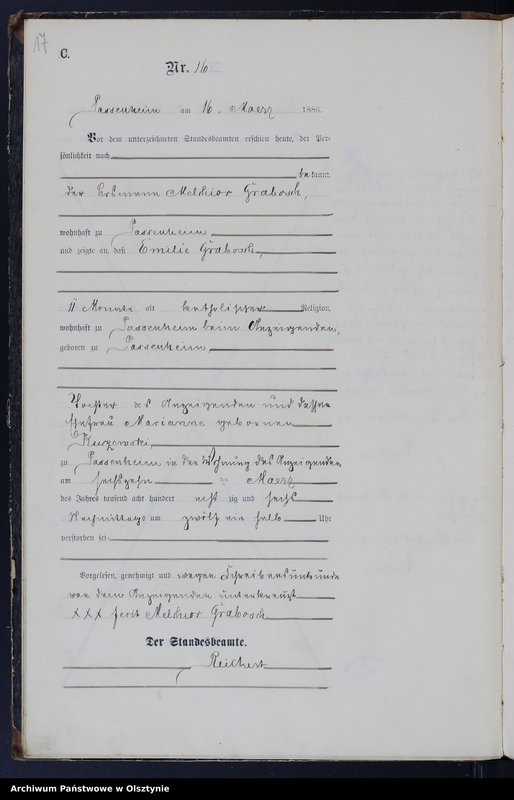 17
C.
Nr. 16
Passenheim am 16. Maerz 1886.
Vor dem unterzeichneten Standesbeamten erschien heute, der Per-
sönlichkeit nach
bekannt,
der Losmann Melchior Grabosch,
wohnhaft zu Passenheim
und zeigte an, daß Emilie Grabosch,
11 Monate alt katholischer Religion,
wohnhaft zu Passenheim beim Anzeigenden,
geboren zu Passenheim,
Tochter des Anzeigenden und dessen
Ehefrau Marianne geborenen
Kurzewski,
zu Passenheim in der Wohnung des Anzeigenden
am sechszehn ten Maerz
des Jahres tausend acht hundert acht zig und sechs
Nachmittags um zwölf ein halb Uhr
verstorben sei.
Vorgelesen, genehmigt und wegen Schreibensunkunde
von dem Anzeigenden unterkreuzt
XXX Melchior Grabosch
Der Standesbeamte.
Reichert
Archiwum Państwowe w Olsztynie